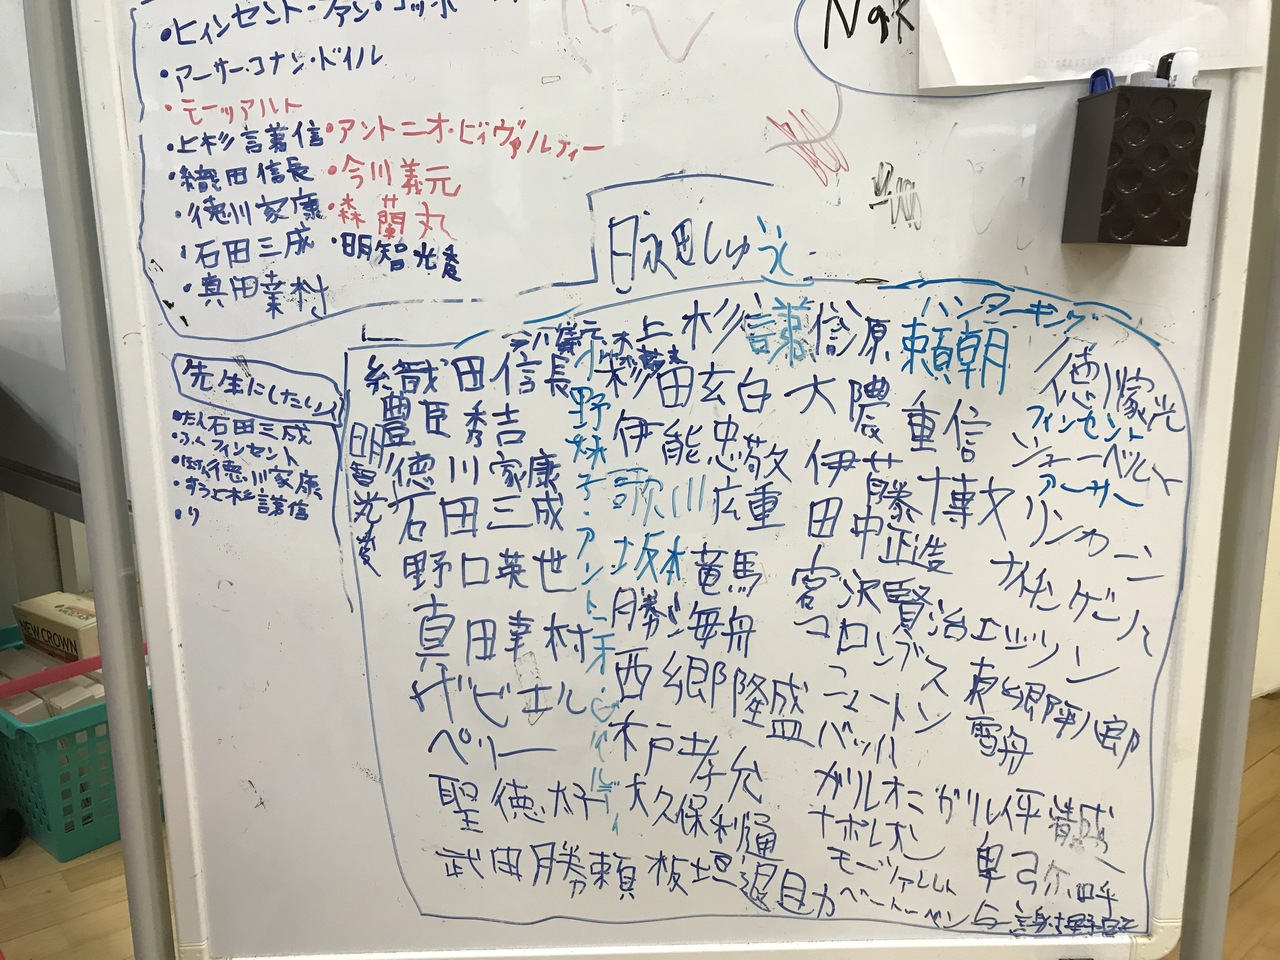 ・ヒィンセント・ファン・ゴッホ
・アーサー・コナン・ドイル
・モーツアルト
・上杉言兼信
・アントニオ・ビィヴァルディー
・織田信長
・今川義元
・徳川家康
・森蘭丸
・石田三成
・明智光秀
・真田幸村
Nak
ハンターキング
今川義元
上杉謙信
源頼朝
徳川家光
織田信長
杉田玄白
大隈重信
フィンセント
豊臣秀吉
伊能忠敬
伊藤博文
シューベルト
明智光秀
徳川家康
歌川広重
田中正造
アーサー
リンカーン
石田三成
坂本竜馬
宮沢賢治
ナイチンゲール
野口英世
勝海舟
コロンブス
エジソン
真田幸村
西郷隆盛
ニュートン
東郷平八郎
ザビエル
木戸孝允
バッハ
雪舟
ペリー
大久保利通
ガリレオ・ガリレイ
平清盛
聖徳太子
板垣退助
ナポレオン
卑弥呼
武田勝頼
モーツァルト
ベートーベン
与謝野晶子
小野妹子・アントニオ・ビバルディ
先生にしたい人
石田三成
フィンセント
徳川家康
上杉謙信
・り
NEW CROWN